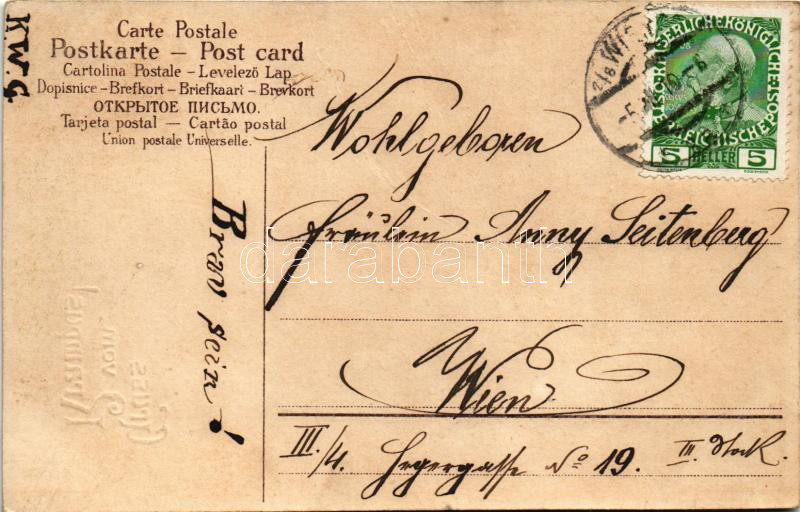 K.W.G.
Carte Postale
Postkarte – Post card
Cartolina Postale – Levelező Lap
Dopisnice – Brefkort – Briefkaart – Brevkort
ОТКРЫТОЕ ПИСЬМО.
Tarjeta postal – Cartão postal
Union postale Universelle.
KAISERLICHE KÖNIGLICHE
ÖSTERREICHISCHE POST
5 HELLER 5
WIEN
Wohlgeboren
Fräulein Anny Seitenberg
Wien
III/4. Hegergasse No 19. III. Stock.
Brav sein!
Gruss
vom
Krampus!
darabanth